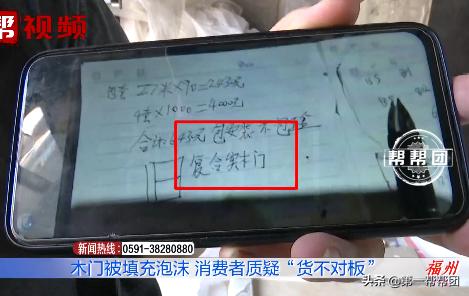 帮视频
27米×90=2430元
4套×1000=4000元
合计:6430元 包安装不包
复合实木门
帮帮团
新闻热线 0591-38280880
木门被填充泡沫 消费者质疑“货不对板”
福州
头条 @第一帮帮团